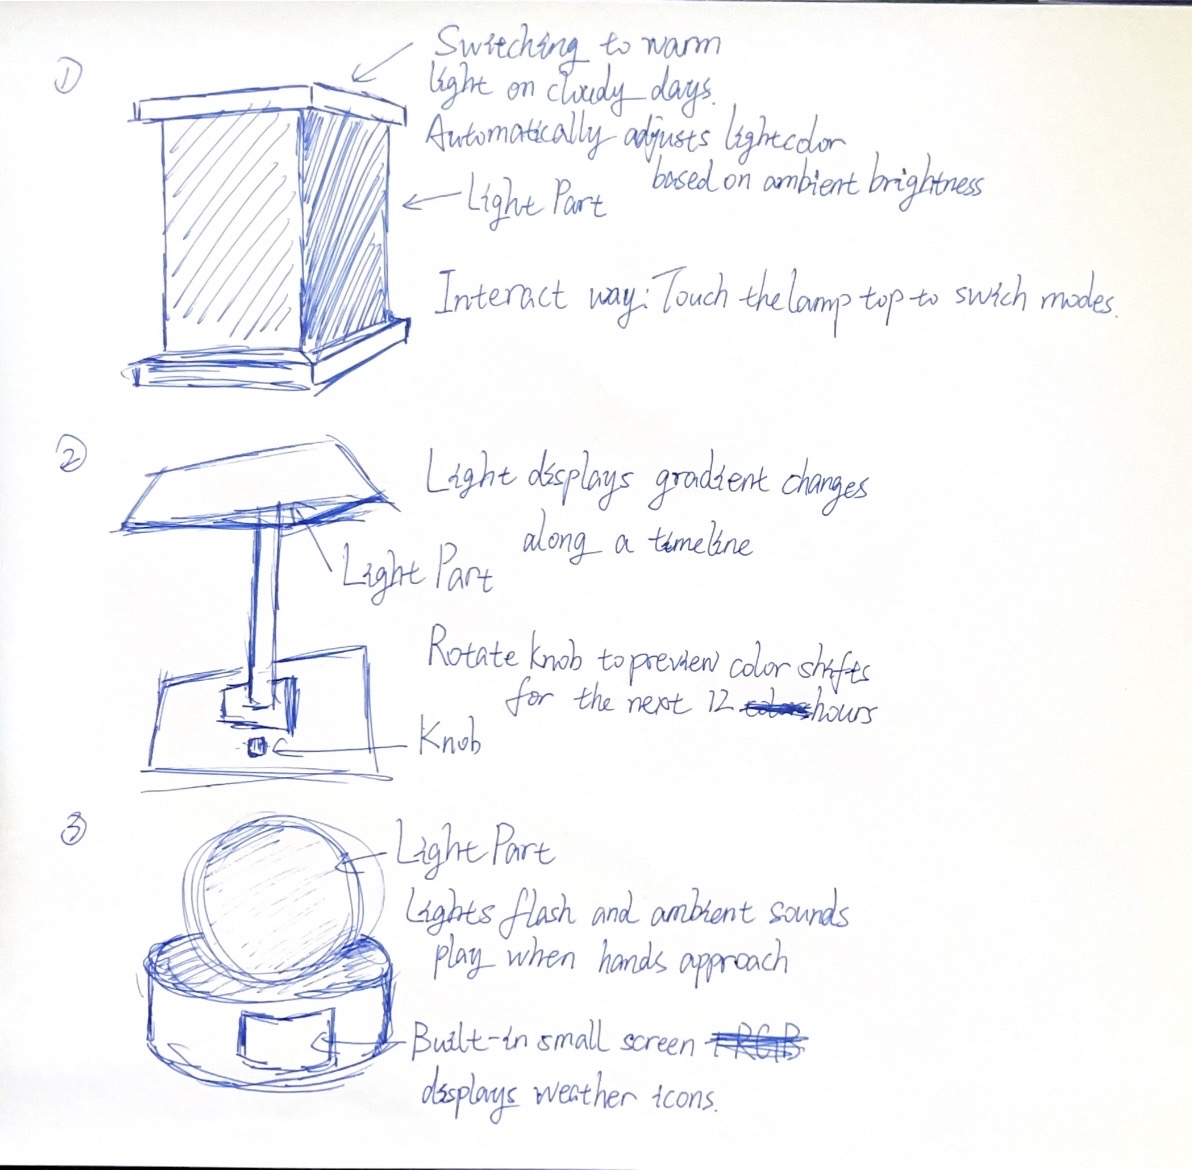 ①
Switching to warm
light on cloudy days.
Automatically adjusts lightcolor
based on ambient brightness
Light Part
Interact way: Touch the lamp top to swich modes.
②
Light displays gradient changes
along a timeline
Light Part
Rotate knob to preview color shifts
for the next 12 colors hours
Knob
③
Light Part
Lights flash and ambient sounds
play when hands approach
Built-in small screen +RGB
displays weather icons.